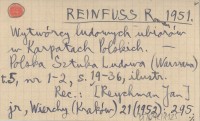 REINFUSS R. 1951.
Wytwórcy ludowych ubiorów
w Karpatach Polskich. —
Polska Sztuka Ludowa (Warszawa)
t.5, nr 1-2, s. 19-36, ilustr.
Rec.: [Reychman Jan]
jr, Wierchy (Kraków) 21 (1952) 295.